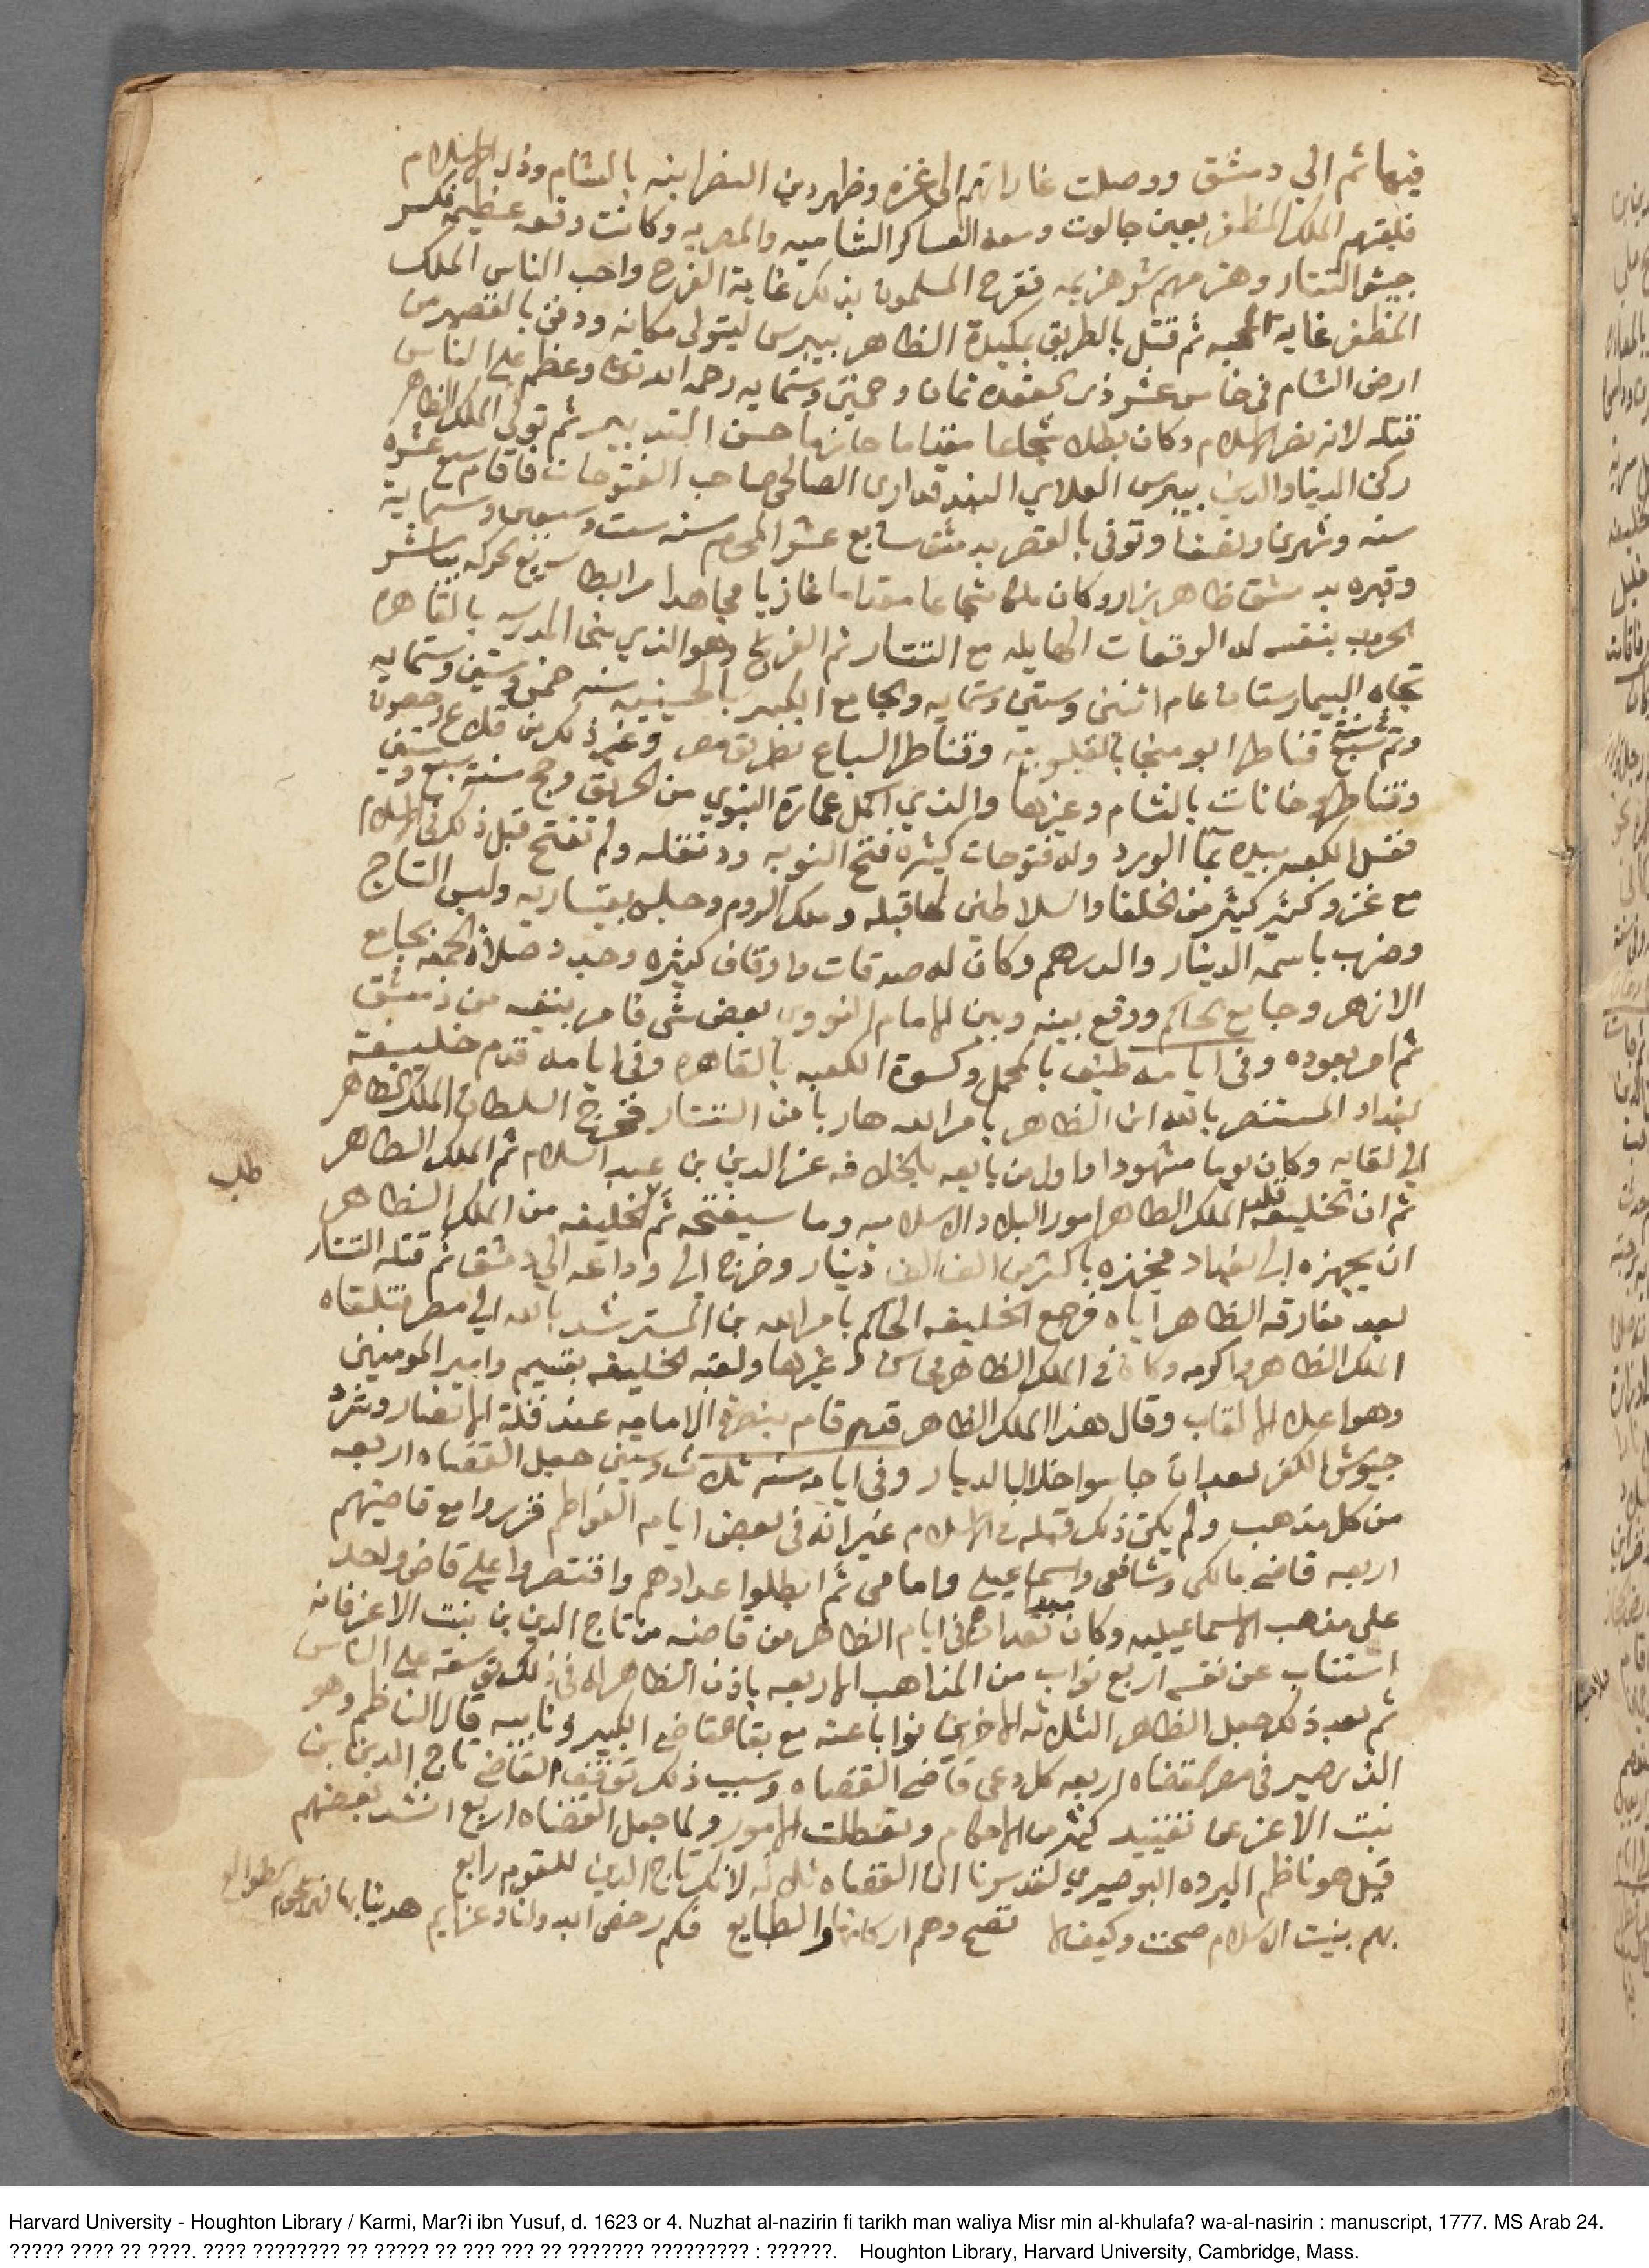 فيها ثم الي دمشق ووصلت غاراتهم الى غزه وظهر دين النصرانيه بالشام وذل الاسلام
فلقيهم الملك المظفر بعين جالوت ومعه العساكر الشاميه والمصريه وكانت وقعه عظيمه فكسر
جيش التتار وهزمهم شر هزيمه ففرح المسلمون بذلك غاية الفرح واحب الناس الملك
المظفر غاية المحبه ثم قتل بالطريق بمكيدة الظاهر بيبرس ليتولى مكانه ودفن بالقصير من
ارض الشام في خامس عشر ذي القعده ثمان وخمسين وستمايه رحمه الله تعالى وعظم على الناس
قتله لانه نصر الاسلام وكان بطلا شجاعا مقداما حازما حسن التدبير ثم تولى الملك الظاهر
ركن الدنيا والدين بيبرس العلاي البندقداري الصالحي صاحب الفتوحات فاقام سبع عشره
سنه وشهرين ونصفا وتوفى بالقصر بدمشق سابع عشر المحرم سنه ست وسبعين وستماية
وقبره بدمشق ظاهر يزار وكان ملكا شجاعا مقداما غازيا مجاهدا مرابطا سريع الحركه يباشر
الحروب بنفسه له الوقعات الهايله مع التتار ثم الفرنج وهو الذي بنى المدرسه بالقاهرة
تجاه البيمارستان عام اثنين وستين وستمايه والجامع الكبير بالحسينيه سنه خمس وستين وستمايه
وثم سنة سبع قناطر ابو منجا بالقليوبيه وقناطر السباع بطريق مصر وغير ذلك من قلاع وحصون
وقناطر وخانات بالشام وغيرها والذي اكمل عمارة النبوي من الحريق وحج سنة سبع وستين
فغسل الكعبه بيده بما الورد وله فتوحات كثيره فتح النوبه ودنقله ولم تفتح قبل ذلك في الاسلام
مع غزو كثير كثير من الخلفا والسلاطين لها قبله وملك الروم وجلس بقيساريه ولبس التاج
وضرب باسمه الدينار والدرهم وكان له صدقات واوقاف كثيره وجدد صلاة الجمعه بجامع
الازهر وجامع الحاكم ووقع بينه وبين الامام النووي بعض شي فامر بنفيه من دمشق
ثم امر بعوده وفى ايامه طيف بالمحمل وكسوة الكعبه بالقاهره وفى ايامه قدم خليفة
بغداد المستنصر بالله ابن الظاهر بامر الله هاربا من التتار فخرج السلطان الملك الظاهر
الي لقايه وكان يوما مشهودا واول من بايعه بالخلافه عز الدين بن عبد السلام ثم الملك الظاهر
طلب
ثم ان الخليفة قلد الملك الظاهر امور البلاد الاسلاميه وما سيفتحه ثم الخليفه من الملك الظاهر
ان يجهزه الى بغداد فجهزه باكثر من الف الف دينار وخرج الى وداعه الي دمشق ثم قتله التتار
بعد مفارقه الظاهر اياه فرجع الخليفه الحاكم بامر الله بن المسترشد بالله الي مصر فتلقاه
الملك الظاهر واكرمه وكان في الملك الظاهر محاسن وغيرها ولقبه الخليفه بقسيم وامير المومنين
وهو اعلا الالقاب وقال هذا الملك الظاهر قد قام بنصرة الاماميه عند قلة الانصار وشرد
جيوش الكفر بعد ان جاسوا خلال الديار وفى ايامه سنه ثلاث وستين جعل القضاه اربعه
من كل مذهب ولم يكن ذلك قبله في الاسلام غير انه في بعض ايام الفواطم قرروا مع قاضيهم
اربعه قاضي مالكي وشافعي واسماعيلي وامامي ثم ابطلوا عدادهم واقتصروا على قاضي واحد
على مذهب الاسماعيليه وكان مبدا تعدادهم في ايام الظاهر من قاضيه من تاج الدين بن بنت الاعز فانه
استناب عن نفسه اربع نواب من المذاهب الاربعه باذن الظاهر له في ذلك توسعة على الناس
ثم بعد ذلك جعل الظاهر الثلاثه الاخرين نوابا عنه مع بقا القاضي الكبير ونايبه قال الناظم وهو
الذي صير في مصر القضاه اربعه كل دعي قاضي القضاه وسبب ذلك توقف القاضي تاج الدين بن
بنت الاعز عن تنفيذ كثير من الاحكام وتعطلت الامور ولما جعل القضاه اربع انشد بعضهم
قيل هو ناظم البرده البوصيري لقد سرنا ان القضاه ثلاثه لانك تاج الدين للقوم رابع
بهم بنيت الاسلام صحت وكيف لا تصح وهم اركانها والطبايع فكم رخص ابدوا لنا وعزايم هدينا بها فهي النجوم الطوالع